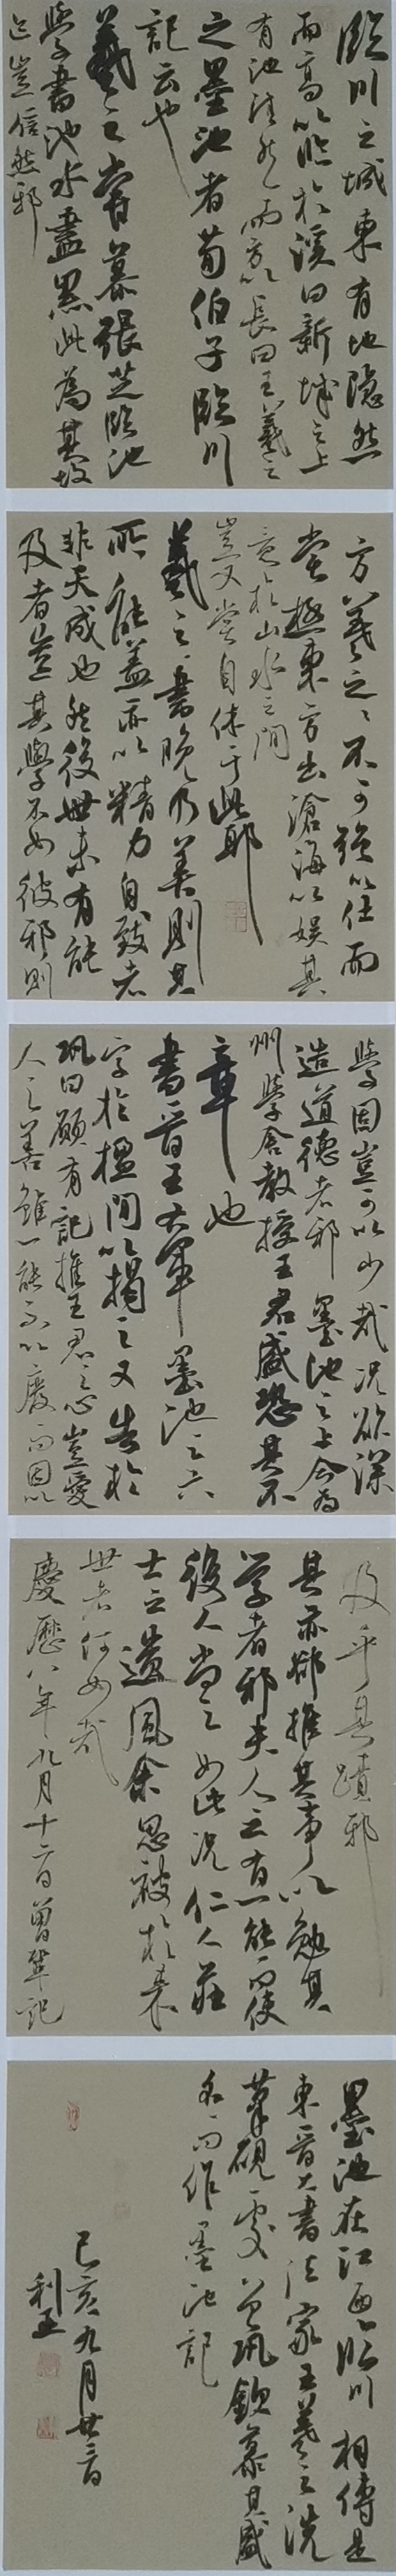 臨川之城東有地隱然
而高以臨於溪曰新城之上
有池洼然而方以長曰王羲之
之墨池者荀伯子臨川
記云也
羲之嘗慕張芝臨池
學書池水盡黑此為其故
迹豈信然邪
方羲之之不可強以仕而
嘗極東方出滄海以娛其
意於山水之間
豈又嘗自休于此耶
羲之之書晚乃善則其
所能蓋亦以精力自致者
非天成也然後世未有能
及者豈其學不如彼邪則
學固豈可以少哉況欲深
造道德者邪墨池之上今為
州學舍教授王君盛恐其不
章也
書晉王右軍墨池之六
字於楹間以揭之又告於
鞏曰願有記推王君之心豈愛
人之善雖一能不以廢而因以
及乎其蹟邪
其亦欲推其事以勉其
学者邪夫人之有一能而使
後人尚之如此況仁人莊
士之遺風余思被於来
世者何如哉
慶曆八年九月十二日曾鞏記
墨池在江西臨川相傳是
東晉大書法家王羲之洗
筆硯處曾鞏欽慕其盛
名而作墨池記
己亥九月廿日
利